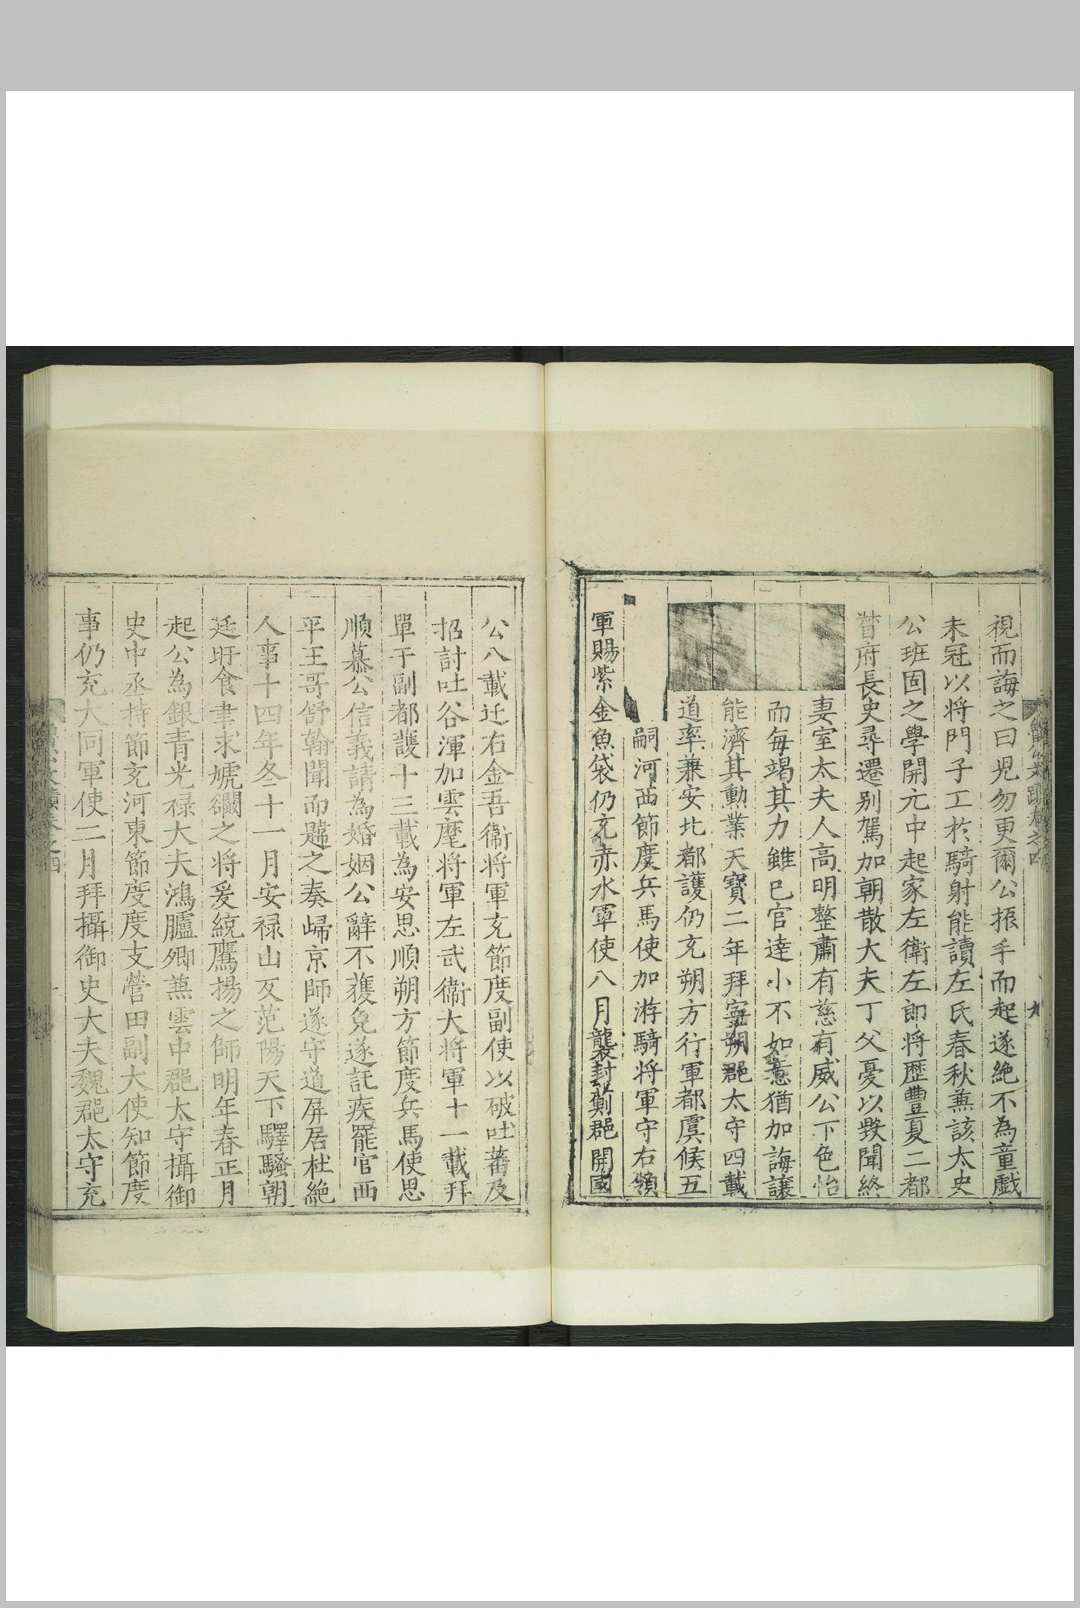 視而誨之曰兒勿更爾公振手而起遂絕不為童戲
未冠以將門子工於騎射能讀左氏春秋兼該太史
公班固之學開元中起家左衛左郎將歷豐夏二都
督府長史尋遷別駕加朝散大夫丁父憂以毀聞終
妻室太夫人高明整肅有慈有威公下色怡
而每竭其力雖已官達小不如意猶加誨讓
能濟其勳業天寶二年拜寧朔郡太守四載
道率兼安北都護仍充朔方行軍都虞候五
嗣河西節度兵馬使加游騎將軍守右領
軍賜紫金魚袋仍充赤水軍使八月襲封薊郡開國
公八載迁右金吾衛將軍充節度副使以破吐蕃及
招討吐谷渾加雲麾將軍左武衛大將軍十一載拜
單于副都護十三載為安思順朔方節度兵馬使思
順慕公信義請為婚姻公辭不獲免遂託疾罷官西
平王哥舒翰聞而韙之奏歸京師遂守道屏居杜絕
人事十四年冬十一月安祿山反范陽天下驛騷朝
廷旰食聿求虓闞之將爰統鷹揚之師明年春正月
起公為銀青光祿大夫鴻臚卿兼雲中郡太守攝御
史中丞持節充河東節度度支營田副大使知節度
事仍充大同軍使二月拜攝御史大夫魏郡太守充